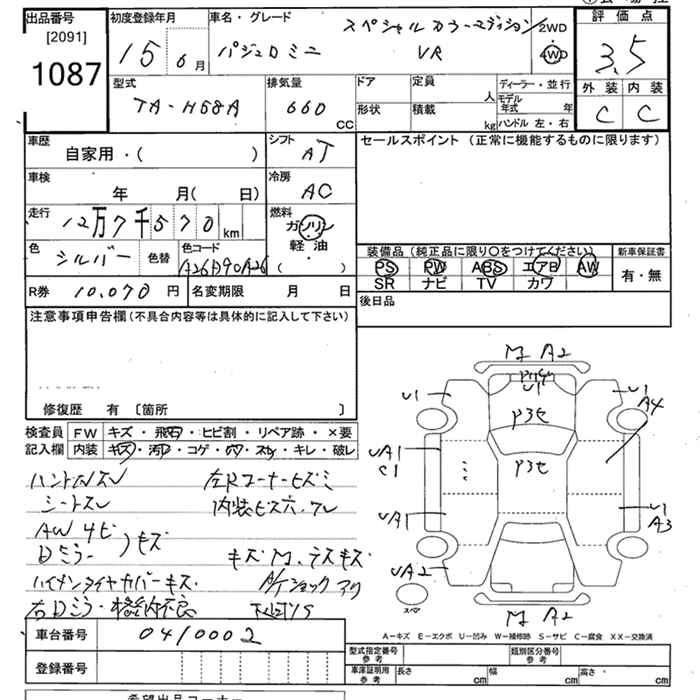 出品番号
[2091]
1087
初度登録年月
15 6月
車名・グレード
スペシャルカラーエディション
パジェロミニ VR
2WD
4WD
評価点
3.5
外装 内装
C C
型式
TA-H58A
排気量
660 CC
ドア
形状
定員 人
積載 kg
ディーラー・並行
モデル年式 年
ハンドル 左・右
車歴
自家用・( )
シフト
AT
セールスポイント (正常に機能するものに限ります)
車検
年 月( 日)
冷房
AC
走行
12万7千570km
燃料
ガソリン
軽油
( )
色
シルバー
色替
色コード
A26D90A26
装備品 (純正品に限り〇をつけてください)
PS PW ABS エアB AW
SR ナビ TV カワ
新車保証書
有・無
R券 10,070円
名変期限 月 日
後日品
注意事項申告欄(不具合内容等は具体的に記入して下さい)
修復歴 有 〔箇所 〕
検査員
記入欄
FW キズ・飛石・ヒビ割・リペア跡・×要
内装 キズ・汚レ・コゲ・穴・スレ・キレ・破レ
ハンドルスレ
シートスレ
AW 4ビ
Dミラー
キズ
左Rコーナーヒズミ
内装ビス穴、ワレ
キズM、ラスキズ
A/Cショックアリ
右Dミラー格納不良
下廻りS
M A2
U1
U1
U1
A4
P3セ
P3セ
UA1
C1
UA1
UA2
U1
A3
スペア
M A2
A-キズ E-エクボ U-凹み W-補修跡 S-サビ C-腐食 XX-交換済
車台番号 0410002
登録番号
型式指定番号
参考
類別区分番号
参考
車庫証明用
参考
長さ cm
幅 cm
高さ cm
希望出品コーナー